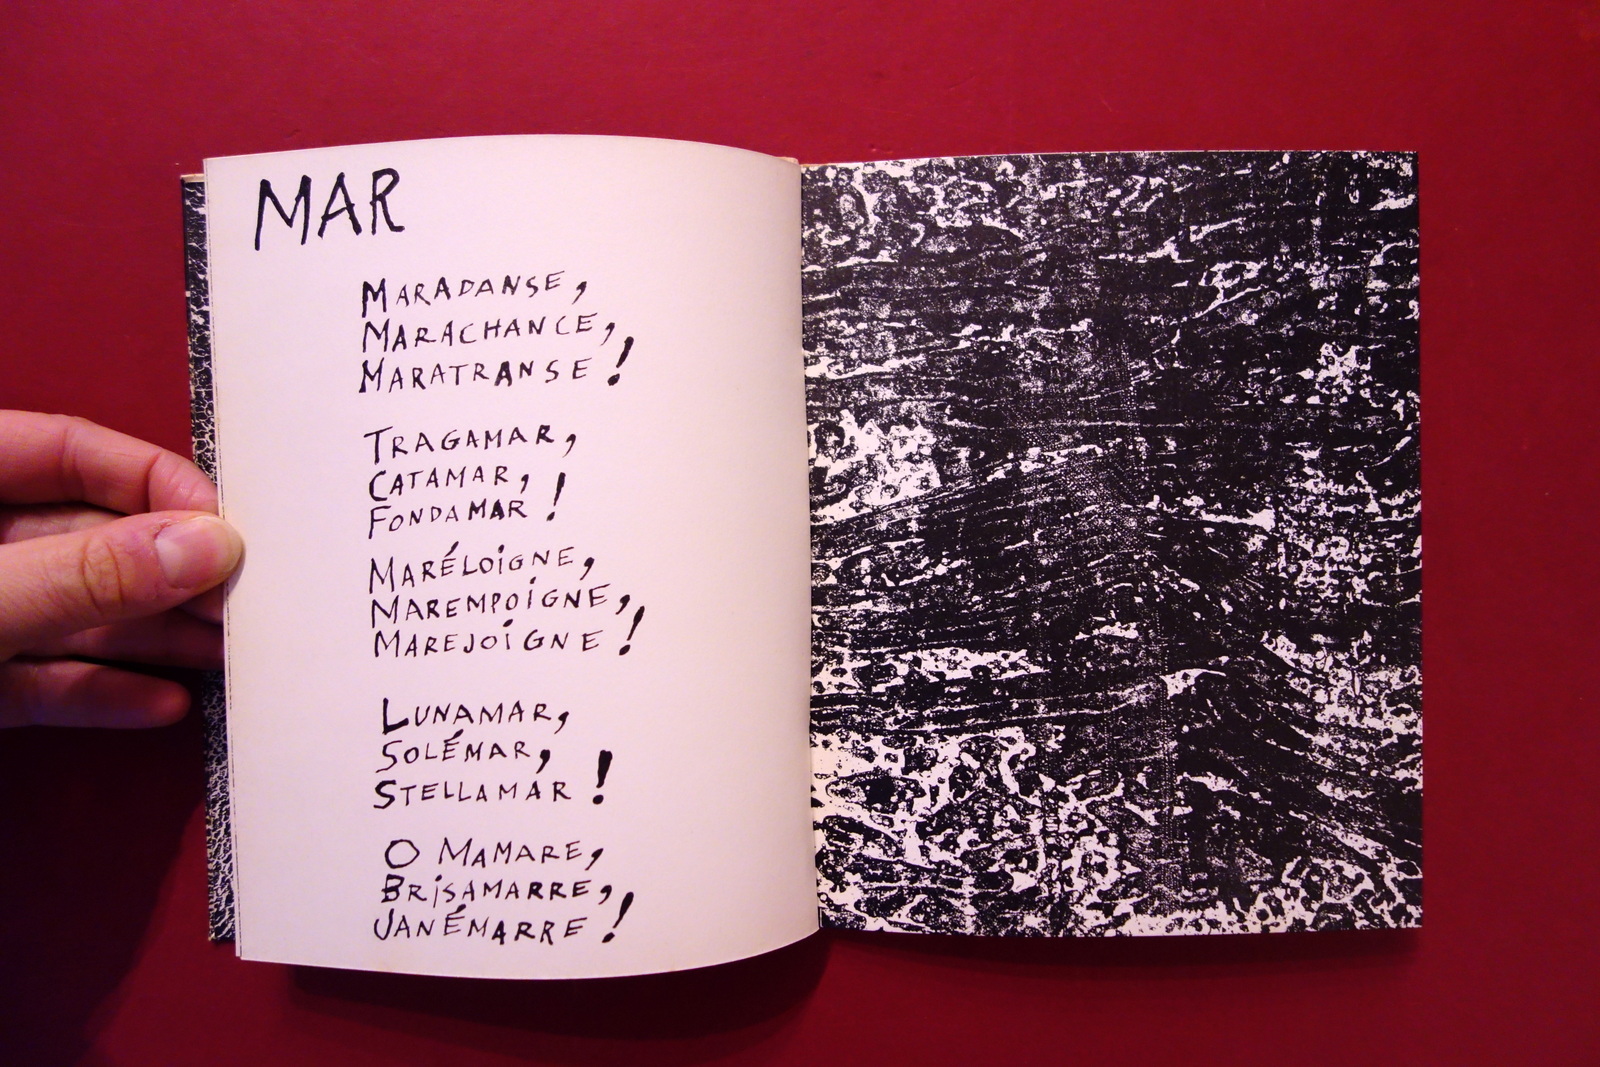 MAR
MARADANSE,
MARACHANCE,
MARATRANSE !
TRAGAMAR,
CATAMAR,
FONDAMAR !
MARÉLOIGNE,
MAREMPOIGNE,
MAREJOIGNE !
LUNAMAR,
SOLÉMAR,
STELLAMAR !
O MAMARE,
BRISAMARRE,
JANÉMARRE !